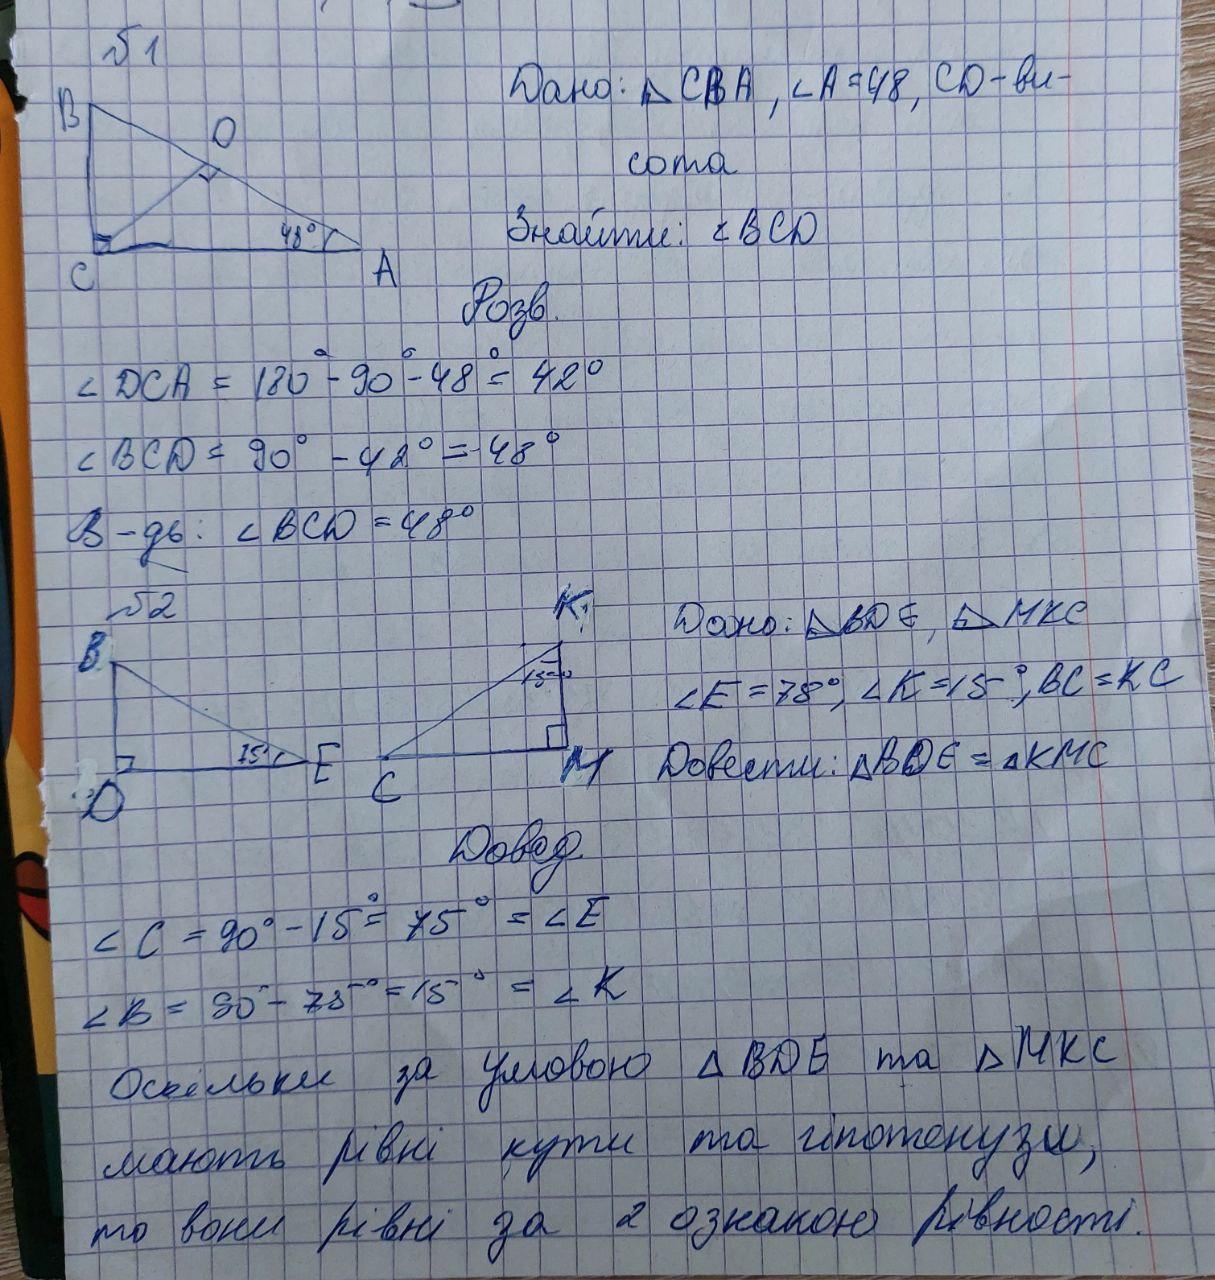 №1
B
D
48°
C
A
Дано: △CBA, ∠A=48, CD-ви-
сота
Знайти: ∠BCD
Розв.
∠DCA = 180°-90°-48°= 42°
∠BCD = 90° - 42° = 48°
В-дь: ∠BCD = 48°
№2
B
75°
E
D
K
15°
C
M
Дано: △BDE, △MKC
∠E = 75°, ∠K=15°, BC=KC
Довести: △BDE = △KMC
Довед.
∠C = 90° - 15° = 75° = ∠E
∠B = 90° - 75° = 15° = ∠K
Оскільки за умовою △BDE та △MKC
мають рівні кути та гіпотенузи,
то вони рівні за 2 ознакою рівності.